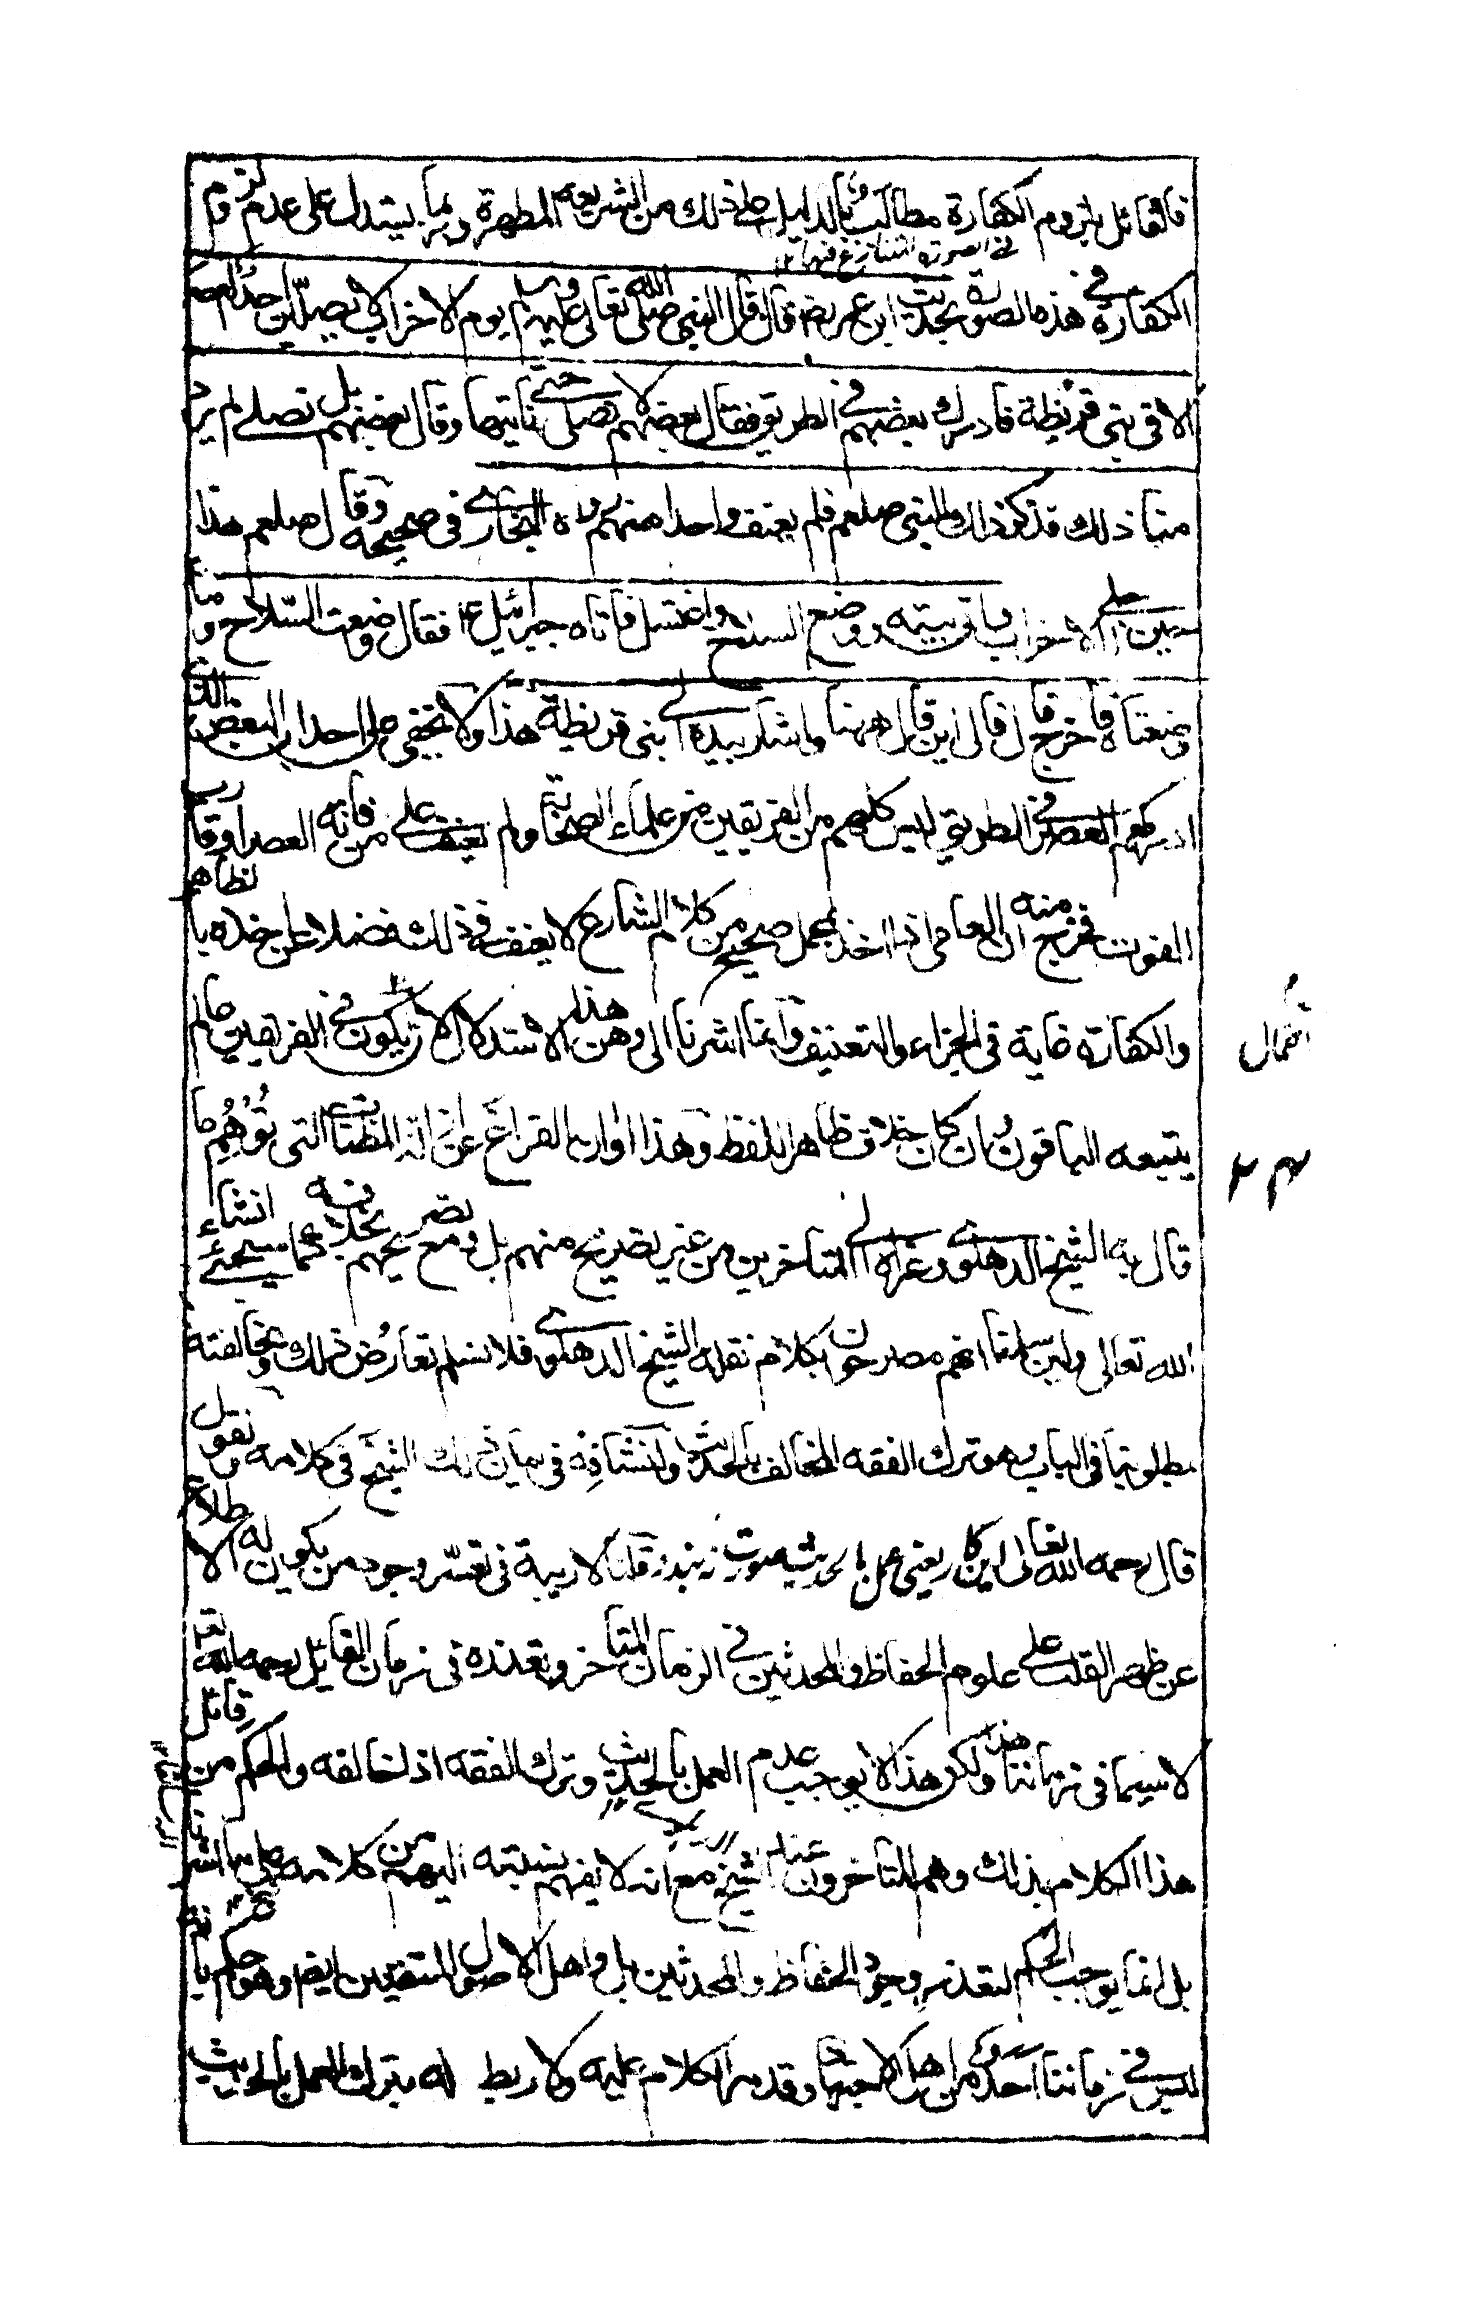 فالقائل بلزوم الكفارة مطالب بالدليل على ذلك من الشريعة المطهرة وربما يستدل على عدم لزوم
في الصورة المتنازع فيها
الكفارة في هذه الصورة بحديث ابن عمر رضي قال قال النبي صلى الله تعالى عليه وسلم يوم الاحزاب لا يصلين احد العصر
الا في بني قريظة فادرك بعضهم في الطريق فقال بعضهم لا نصلي حتى ناتيها وقال بعضهم بل نصلي لم يرد
منا ذلك فذكر ذلك للنبي صلعم فلم يعنف واحدا منهم رواه البخاري في صحيحه وقال صلعم هذا
حين الاحزاب وبيته ووضع السلاح واغتسل فاتاه جبرائيل ع فقال وضعت السلاح وما
وضعناه فاخرج قال فاين قال ههنا واشار بيده الى بني قريظة هذا ولا يخفى على احد ان البعض الذي
ادركهم العصر في الطريق ليس كلهم من الفريقين من علماء الصحابة ولم يعنف على من فاته العصر او قارب
الفوت منه ان العامي اذا اخذ بمحمل صحيح من كلام الشارع لا يعنف في ذلك فضلا عن اخذه بظاهر
والكفارة غاية في الجزاء والتعنيف وانما اشرنا الى وهن هذا الاستدلال لان يكون في الفريقين عالم
احتمال
يتبعه الباقون كان خلاف ظاهر اللفظ وهذا اوان الفراغ عن التي توهم ما
٢
قال به الشيخ الدهلوي وعزاه الى المتاخرين من غير تصريح منهم بل ومع تصريحهم بخلافه كما سيجئ انشاء
الله تعالى ولئن سلمنا انهم مصرحون بكلام نقله الشيخ الدهلوي فلا نسلم تعارض ذلك ومخالفته
مطلوبنا في الباب وهو ترك الفقه المخالف بالحديث في ذلك الشيخ في كلامه ونقول
قال رحمه الله تعالى اين كار يعني عمل بالحديث صورت نبندد قلنا لا ريبة في تعسر وجود من يكون له الاطلاع
عن ظهر القلب على علوم الحفاظ والمحدثين في الزمان المتاخر وتعذره في زمان القائل رحمه الله تعالى
لا سيما في زماننا هذا ولكن هذا لا يوجب عدم العمل بالحديث وترك الفقه اذا خالفه والحكم من قائل
هذا الكلام بذلك وهم المتاخرون عند الشيخ مع انه لا يفهم نسبته اليهم من كلامه
بل انما يوجب الحكم لتعذر وجود الحفاظ والمحدثين بل واهل الاصول المتقنين ايضا وهو حكم بانه
ليس في زماننا احد من اهل الاجتهاد وقد مر الكلام عليه ولا ربط له بترك العمل بالحديث